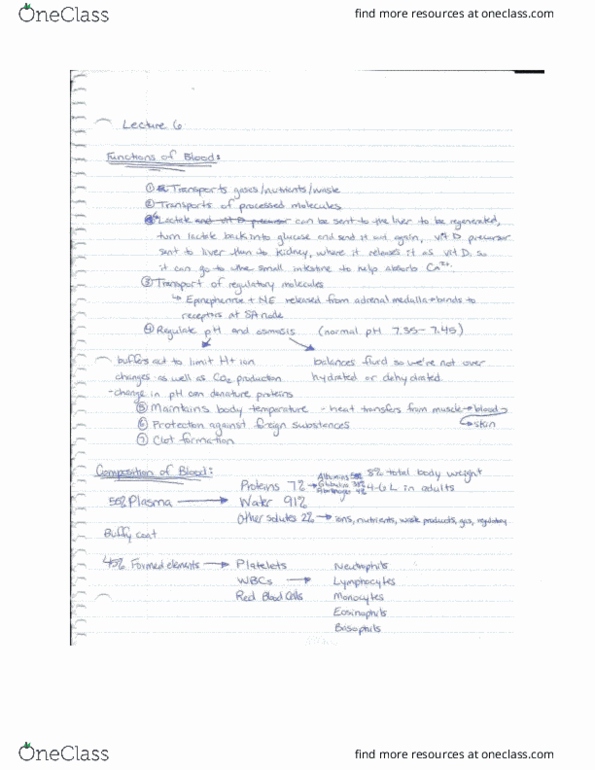 OneClass
find more resources at oneclass.com
Lecture 6
Functions of Blood:
① Transports gases/nutrients/waste
② Transports of processed molecules
Lactate and vit D precursor can be sent to the liver to be regenerated,
turn lactate back into glucose and send it out again, vit D precursor
sent to liver then to kidney, where it releases it as vit D, so
it can go to the small intestine to help absorb Ca²⁺.
③ Transport of regulatory molecules
↳ Epinephrine + NE released from adrenal medulla + binds to
receptors at SA node
④ Regulate pH and osmosis (normal pH 7.35-7.45)
buffers act to limit H+ ion
balances fluid so we're not over
changes as well as CO₂ production
hydrated or dehydrated.
- change in pH can denature proteins
⑤ Maintains body temperature - heat transfers from muscle → blood
→ skin
⑥ Protection against foreign substances
⑦ Clot formation
Composition of Blood:
8% total body weight
Proteins 7% → Albumins Globulins 38% 4-6 L in adults
55% Plasma → Water 91%
Other solutes 2% → ions, nutrients, waste products, gas, regulatory
Buffy coat
45% Formed elements → Platelets
Neutrophils
WBCs → Lymphocytes
Red Blood Cells
Monocytes
Eosinophils
Basophils
OneClass
find more resources at oneclass.com